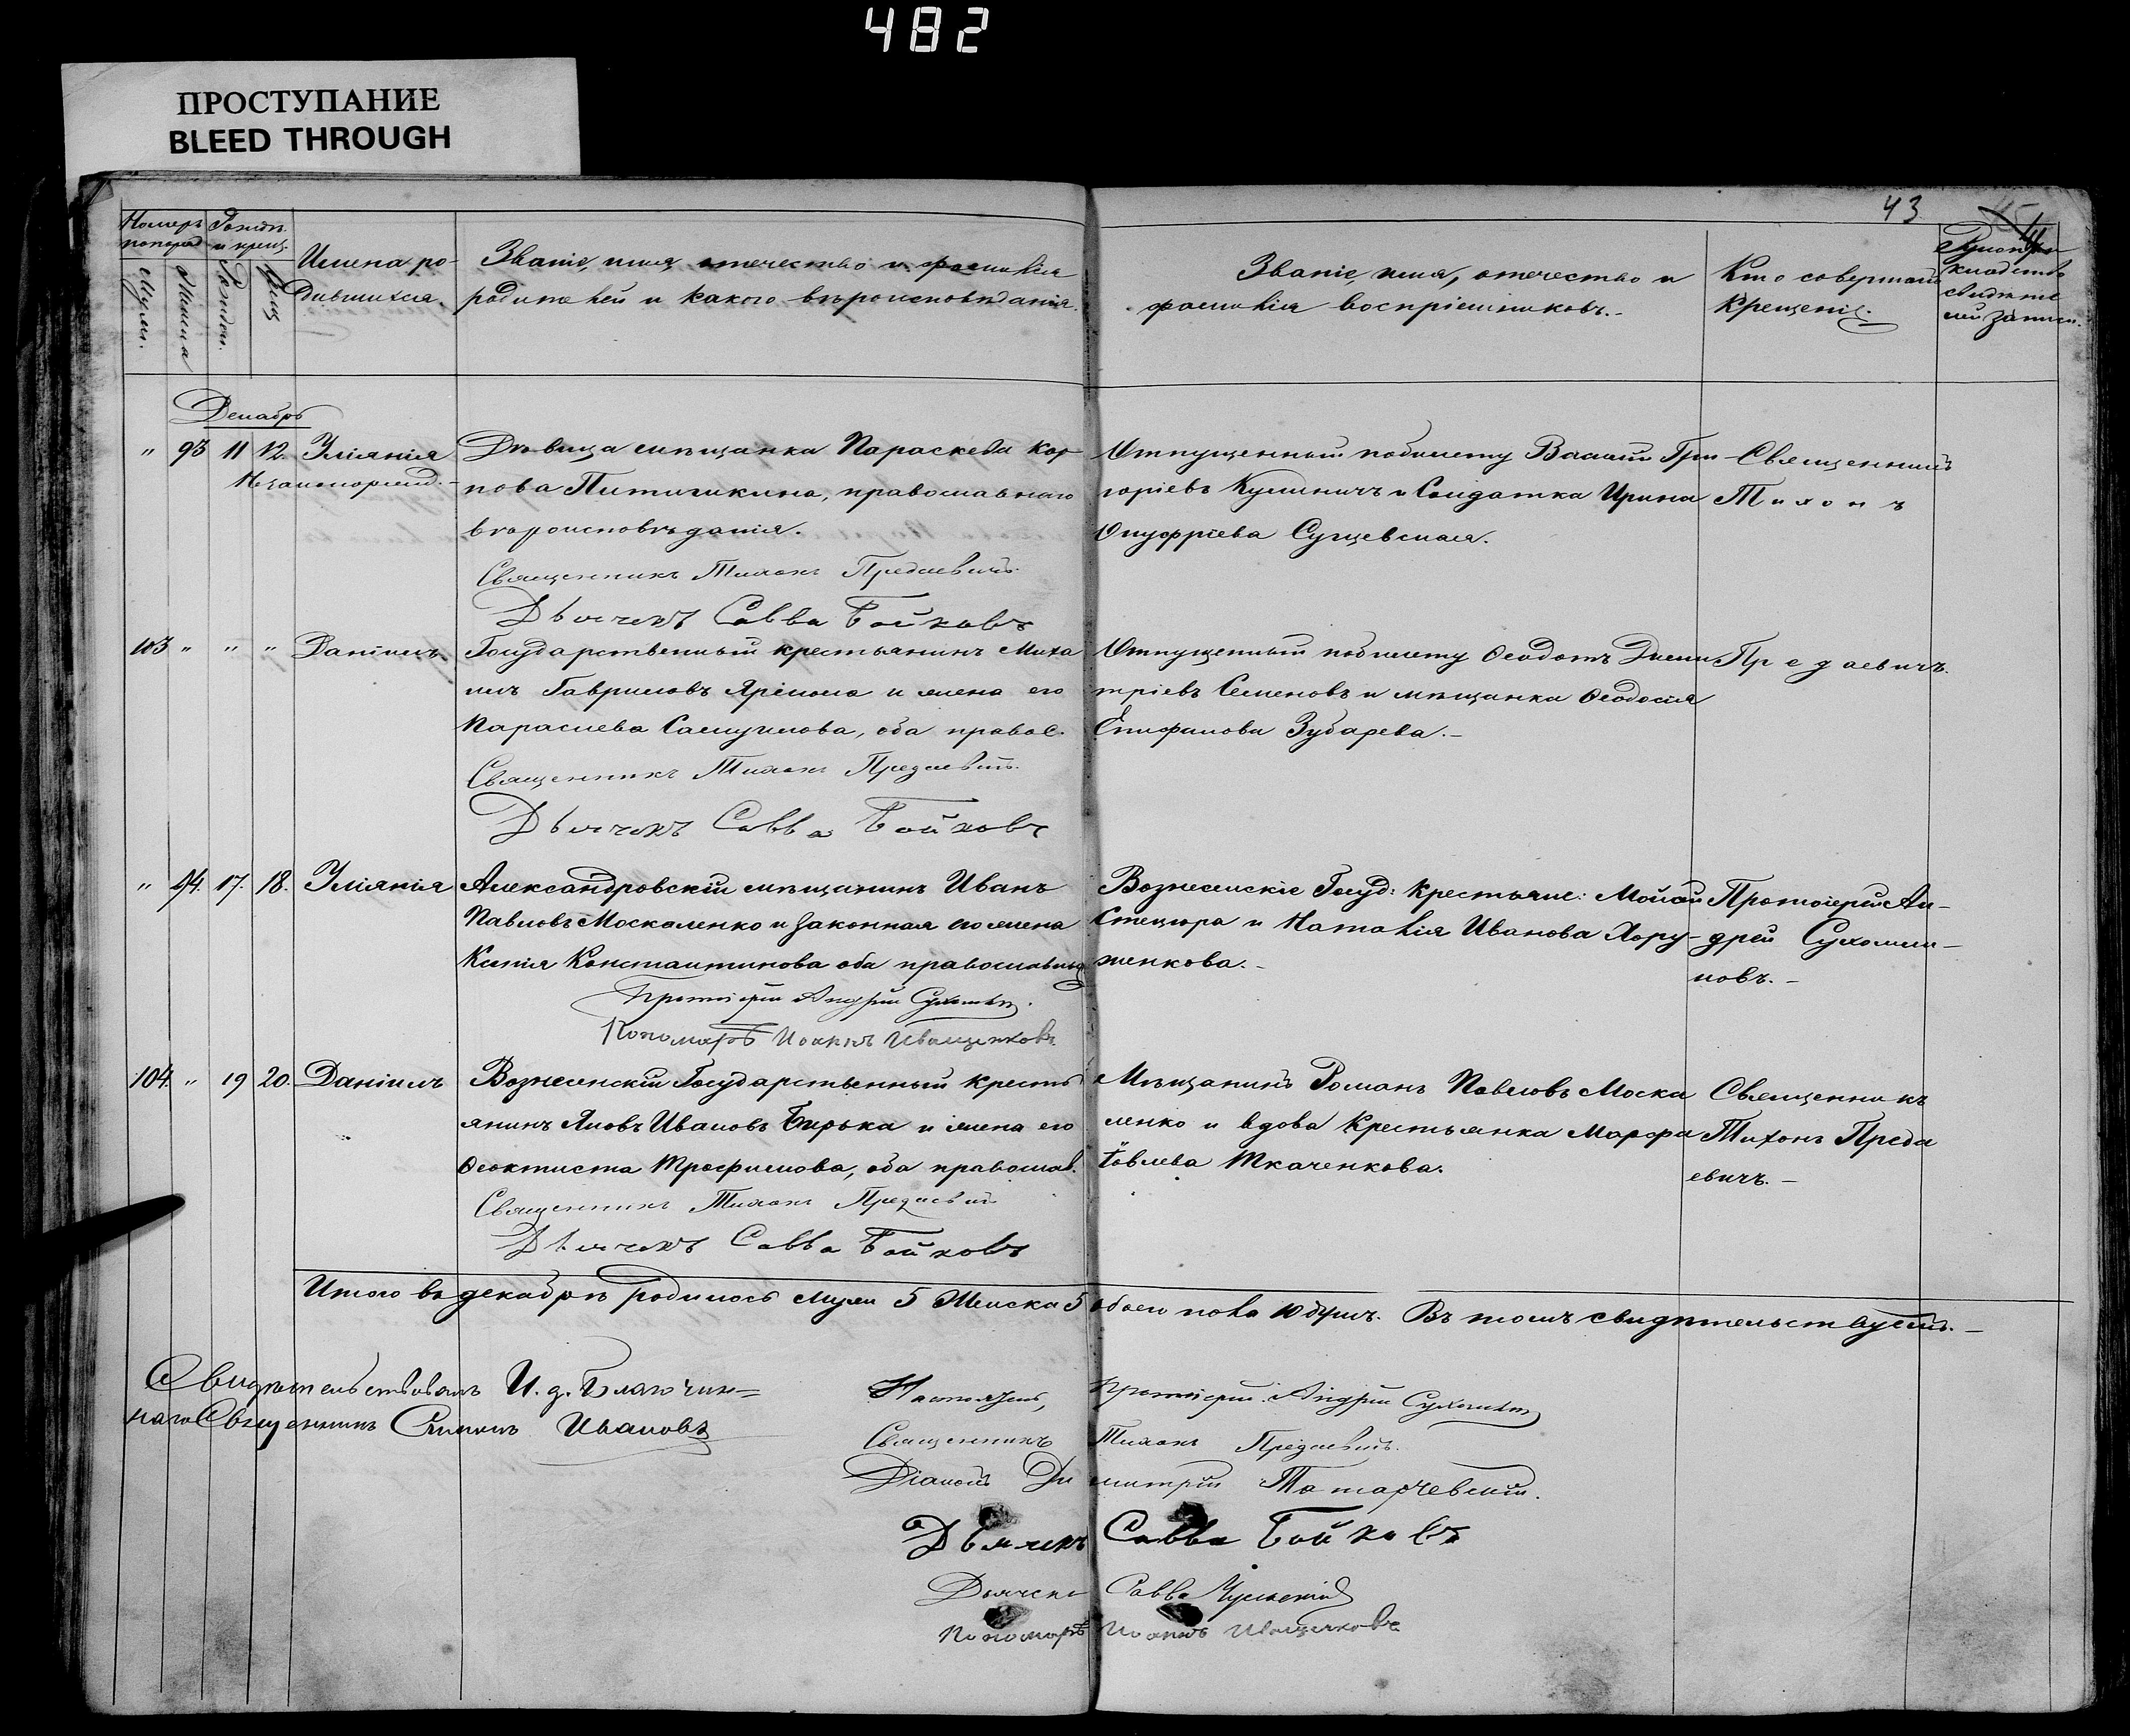 482
ПРОСТУПАНИЕ
BLEED THROUGH
43
Номеръ
Имена ро-
дившихся.
Званіе, имя, отечество и фамилія
родителей и какого вѣроисповѣданія.
Званіе, имя, отечество и
фамилія воспріемниковъ.
Кто совершалъ
крещеніе.
Мужи.
Женска
Декабрь
" 93 11 12. Уліянія
Незаконорожд.
Дѣвица мѣщанка Параскева Кар-
пова православнаго
вѣроисповѣданія.
Священникъ Тихонъ Предаевичъ.
Дьячекъ Савва Бойковъ
Отпущенный по билету Василій Гри-
горіевъ и Солдатка Ирина
Онуфріева Сущевская.
Священникъ
Тихонъ
103 " " " Даніилъ.
Государственный крестьянинъ Миха
илъ Гавриловъ и жена его
Параскева Самуилова, оба правос.
Священникъ Тихонъ Предаевичъ.
Дьячекъ Савва Бойковъ
Отпущенный по билету Ѳеодотъ Дими
тріевъ Семеновъ и мѣщанка Ѳеодосія
Епифанова Зубарева.-
Предаевичъ.
" 94. 17. 18. Уліянія
Александровскій мѣщанинъ Иванъ
Павловъ Москаленко и законная его жена
Ксенія Константинова оба православные
Протоіерей Андрей Сухомлинъ.
Пономарь Иоаннъ Иващенковъ.
Вознесенскіе Госуд: крестьяне: Мойсей
Стецюра и Наталія Иванова Хору-
женкова.-
Протоіерей Ан-
дрей Сухомли-
новъ.-
104. " 19 20. Даніилъ
Вознесенскій Государственный кресть
янинъ Яковъ Ивановъ Бирька и жена его
Ѳеоктиста Трофимова, оба православ.
Священникъ Тихонъ Предаевичъ
Дьячекъ Савва Бойковъ
Мѣщанинъ Романъ Павловъ Моска
ленко и вдова Крестьянка Марфа
Іовлева Ткаченкова.
Священникъ
Тихонъ Преда
евичъ.-
Итого въ декабрѣ родилось мужи 5 Женска 5 обоего пола 10 душъ. Въ томъ свидѣтельствуемъ.-
Свидѣтельствовалъ И. д. Благочин=
наго Священникъ Симеонъ Ивановъ
Настоятель, Протоіерей Андрей Сухомлинъ
Священникъ Тихонъ Предаевичъ.
Діаконъ Димитрій Татарчевскій.
Дьячекъ Савва Бойковъ
Дьячекъ Савва
Пономарь Иоаннъ Иващенковъ